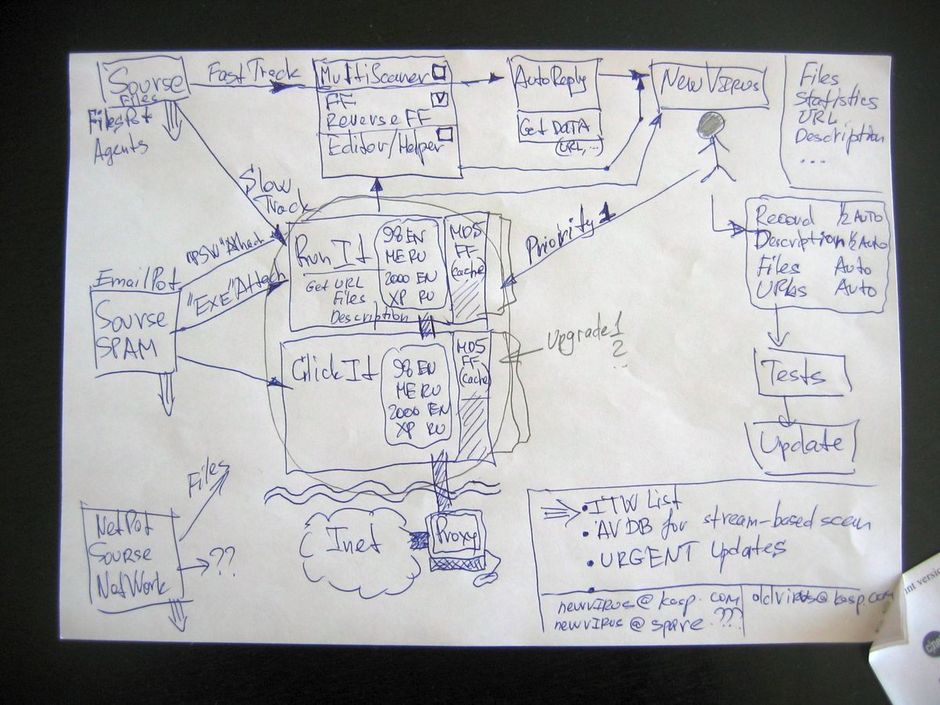 Sourse
Files
FilesPot
Agents
FastTrack
MultiScaner
FF
Reverse FF
Editor/Helper
AutoReply
Get DATA
(URL,...)
NewVIRUS
Files
Statistics
URL
Description
...
Slow
Track
"PSW" Attach
"EXE" Attach
EmailPot
Sourse
SPAM
RunIt
Get URL
Files
Description
98 EN
ME RU
2000 EN
XP RU
MD5
FF
(cache)
Priority 1
Record 1/2 AUTO
Description 1/2 Auto
Files Auto
URLs Auto
ClickIt
98 EN
ME RU
2000 EN
XP RU
MD5
FF
(cache)
Upgrade 1
2
Tests
Update
Files
NetPot
Sourse
NatWork
??
Inet
Proxy
• ITW List
• AVDB for stream-based scean
• URGENT Updates
•
newvirus@kasp.com
oldvirus@kasp.com
newvirus@spare.???